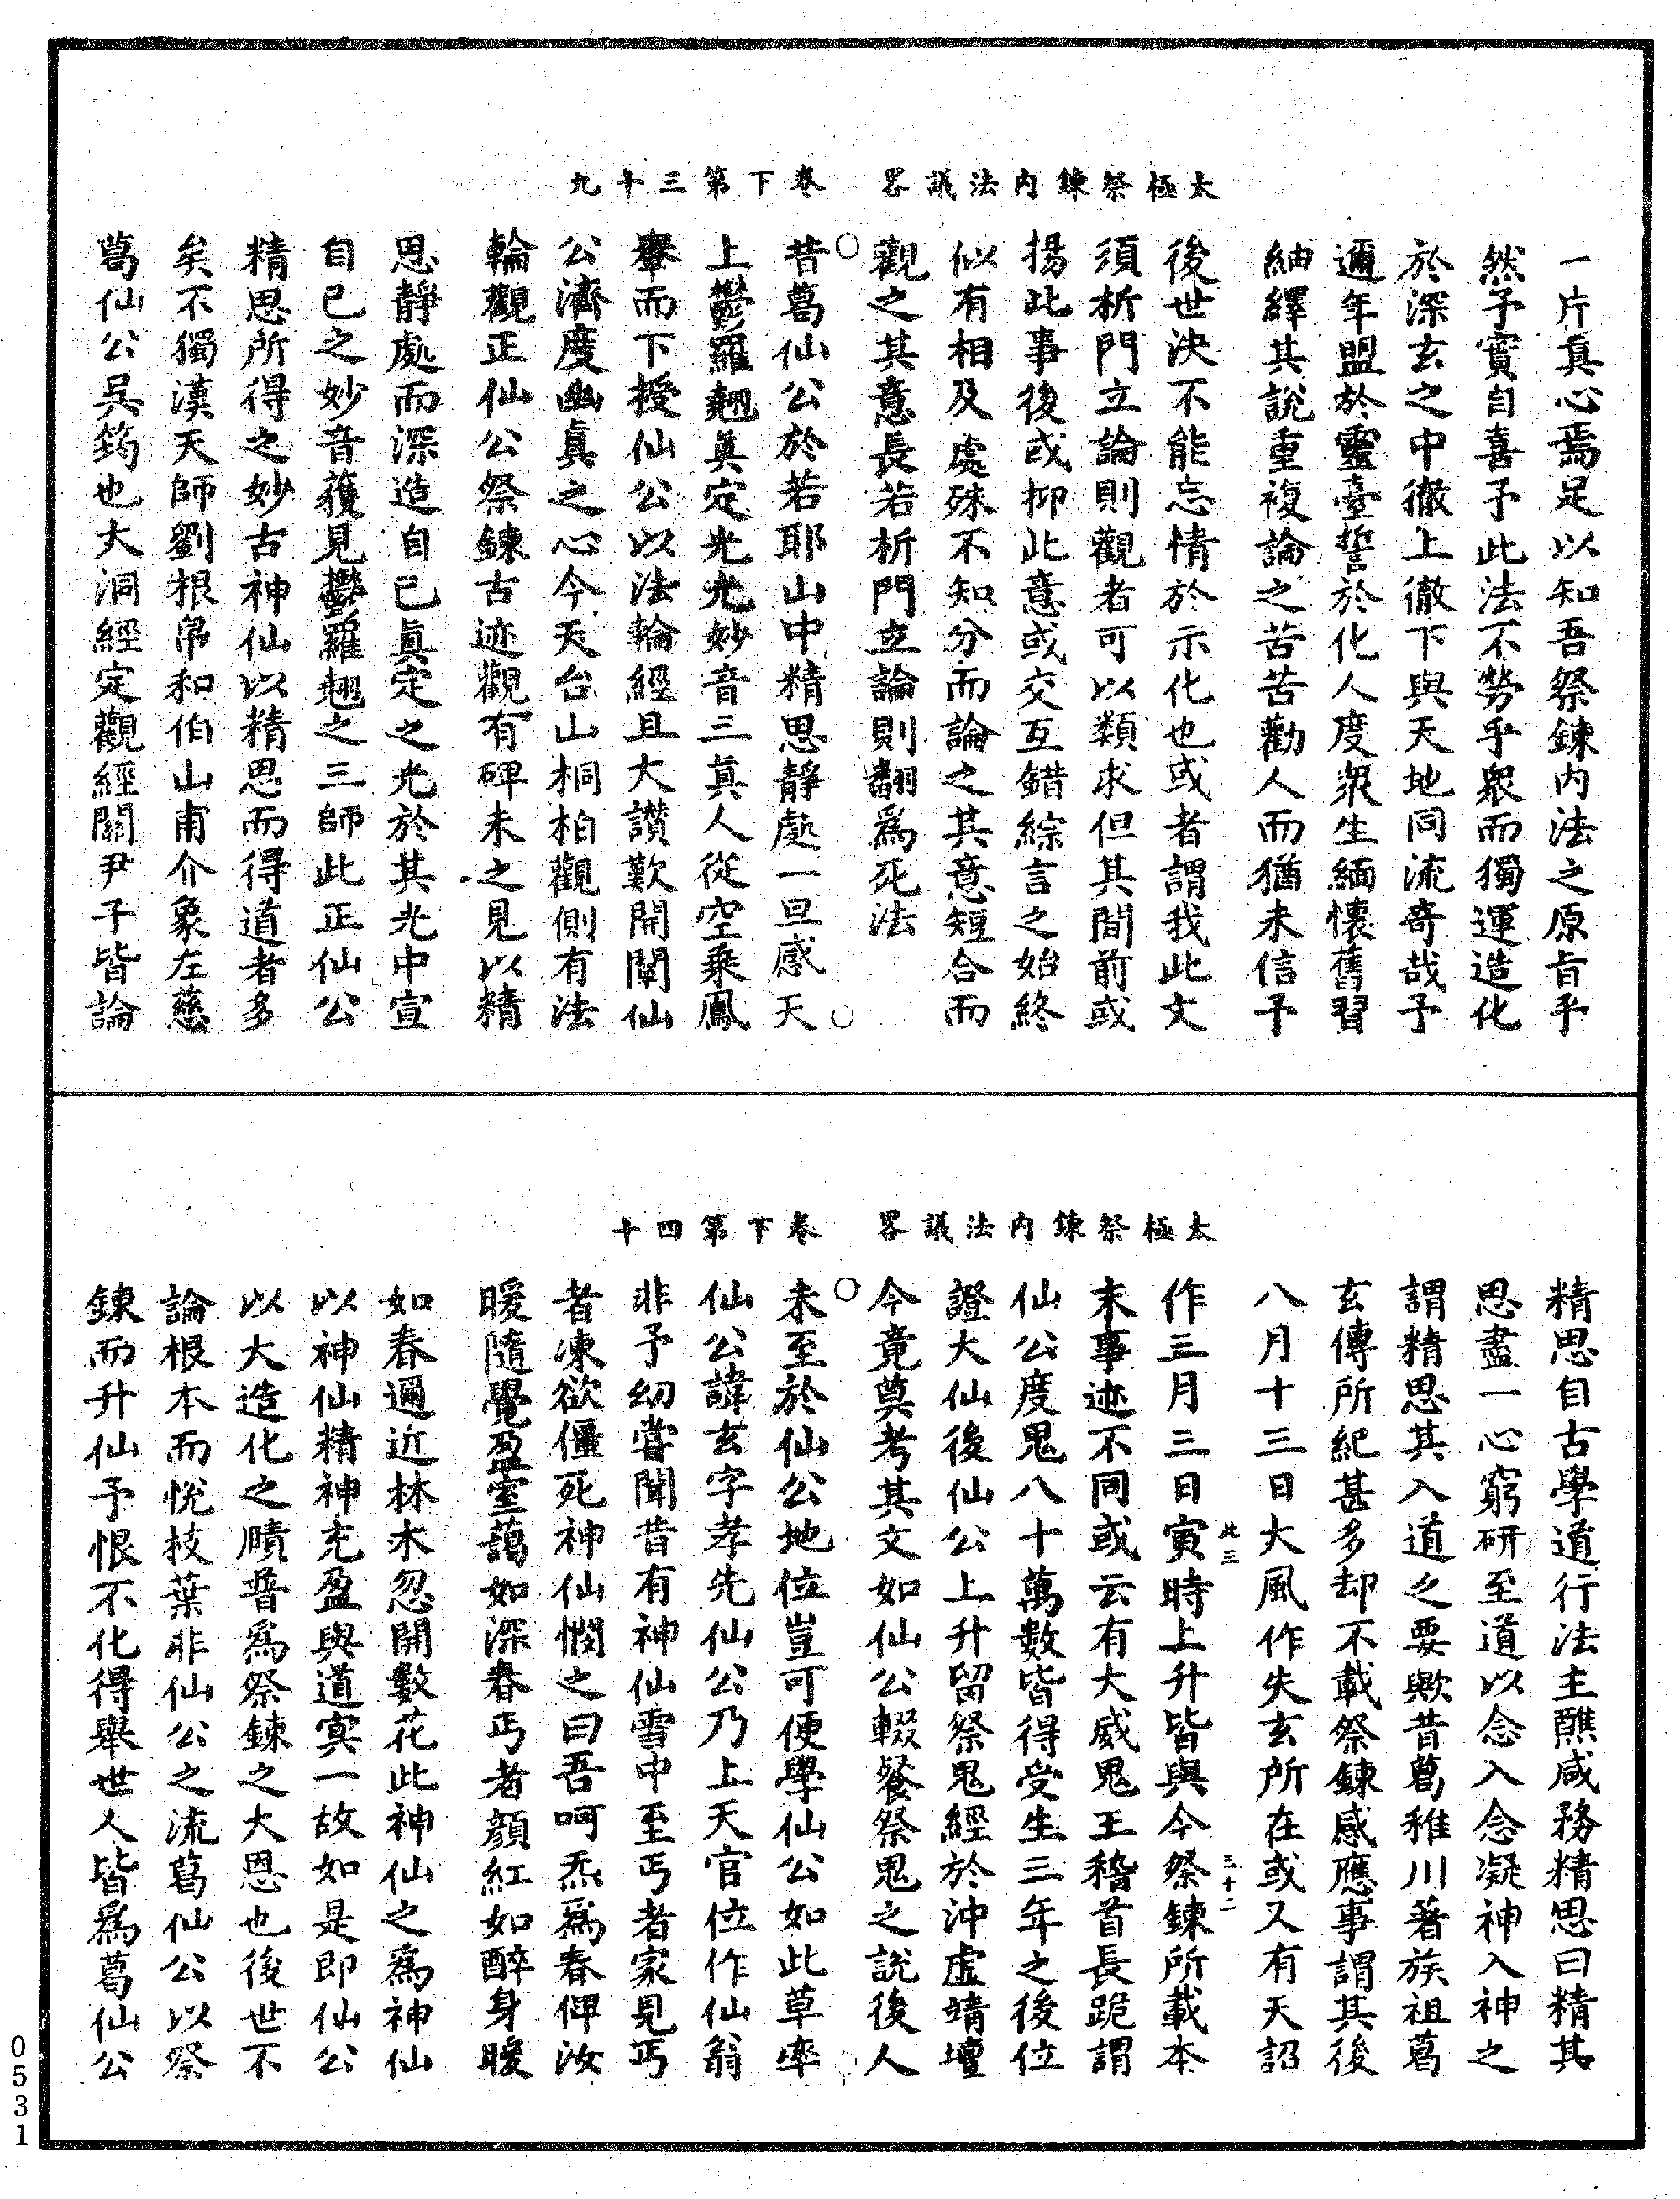 太極祭鍊內法議畧　卷下第三十九
一片真心焉足以知吾祭鍊內法之原旨乎
然予實自喜予此法不勞乎衆而獨運造化
於深玄之中徹上徹下與天地同流奇哉予
邇年盟於靈臺誓於化人度衆生緬懷舊習
紬繹其說重複論之苦苦勸人而猶未信予
後世決不能忘情於示化也或者謂我此文
須析門立論則觀者可以類求但其間前或
揚此事後或抑此意或交互錯綜言之始終
似有相及處殊不知分而論之其意短合而
觀之其意長若析門立論則翻爲死法
○昔葛仙公於若耶山中精思靜處一旦感天○
上鬱羅翹真定光光妙音三真人從空乘鳳
輦而下授仙公以法輪經且大讃歎開闡仙
公濟度幽真之心今天台山桐柏觀側有法
輪觀正仙公祭鍊古迹觀有碑未之見以精
思靜處而深造自己真定之光於其光中宣
自己之妙音獲見鬱羅翹之三師此正仙公
精思所得之妙古神仙以精思而得道者多
矣不獨漢天師劉根帛和伯山甫介象左慈
葛仙公吳筠也大洞經定觀經關尹子皆論
太極祭鍊內法議畧　卷下第四十
精思自古學道行法主醮咸務精思曰精其
思盡一心窮研至道以念入念凝神入神之
謂精思其入道之要歟昔葛稚川著族祖葛
玄傳所紀甚多却不載祭鍊感應事謂其後
八月十三日大風作失玄所在或又有天詔
此三　三十二
作三月三日寅時上升皆與今祭鍊所載本
末事迹不同或云有大威鬼王稽首長跪謂
仙公度鬼八十萬數皆得受生三年之後位
證大仙後仙公上升留祭鬼經於沖虛靖壇
今竟莫考其文如仙公輟餐祭鬼之說後人
○未至於仙公地位豈可便學仙公如此草率
仙公諱玄字孝先仙公乃上天官位作仙翁
非予幼嘗聞昔有神仙雪中至丐者家見丐
者凍欲僵死神仙憫之曰吾呵炁爲春俾汝
暖隨覺盈室藹如深春丐者顔紅如醉身暖
如春邇近林木忽開數花此神仙之爲神仙
以神仙精神充盈與道冥一故如是即仙公
以大造化之賾普爲祭鍊之大恩也後世不
論根本而悅枝葉非仙公之流葛仙公以祭
鍊而升仙予恨不化得舉世人皆爲葛仙公
0531